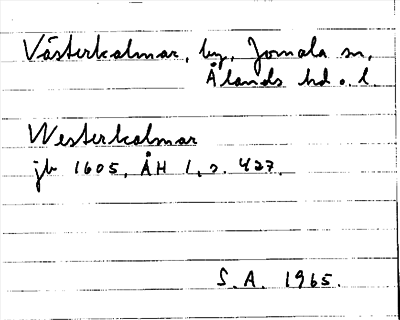 Västerkalmar, by, Jomala sn,
Ålands hd o. l.
Westerkalmar
jb 1605, ÅH 1, s. 427.
S. A. 1965.